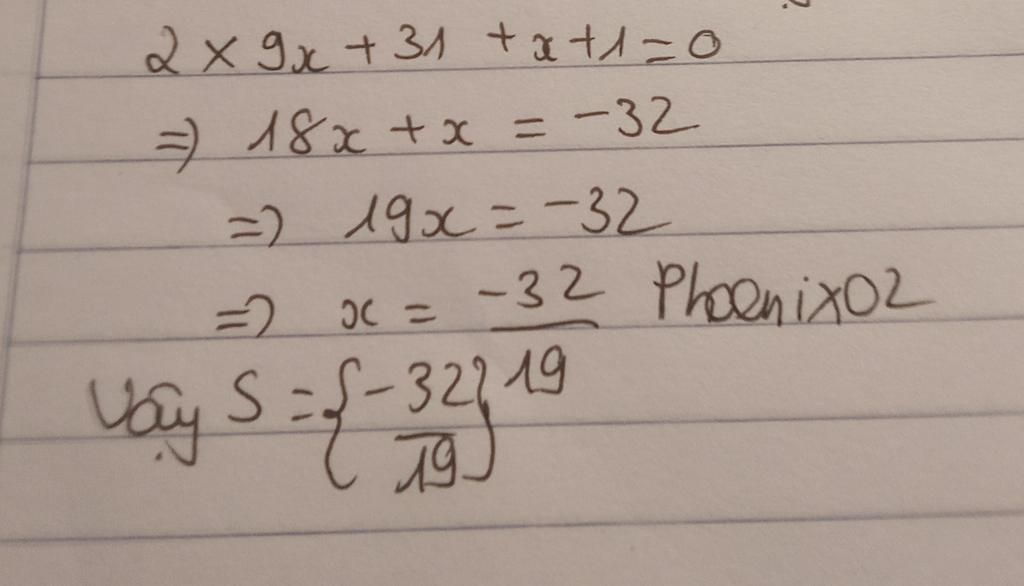 2 × 9x + 31 + x + 1 = 0
=> 18x + x = -32
=> 19x = -32
=> x = -32/19 Phoenix02
Vậy S = {-32/19}